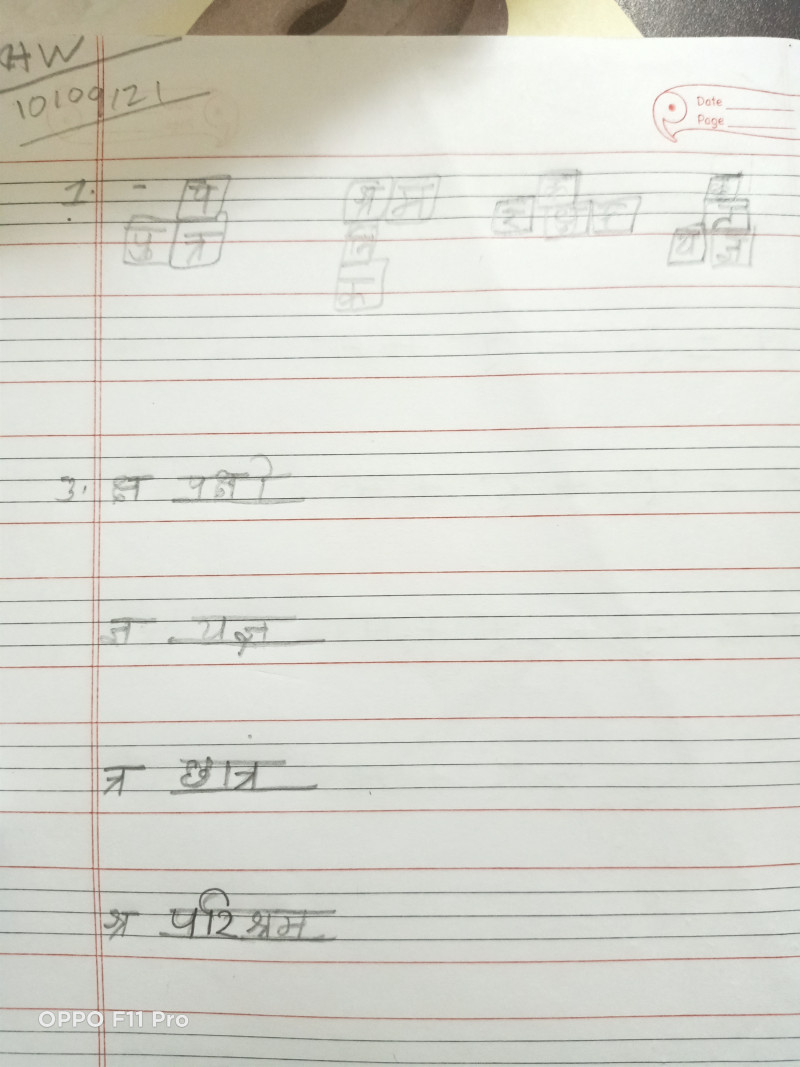 HW
10/09/21
Date
Page
1. प श्र म
पु त्र
3. क्ष पक्षी
ज्ञ यज्ञ
त्र छात्र
श्र परिश्रम
OPPO F11 Pro